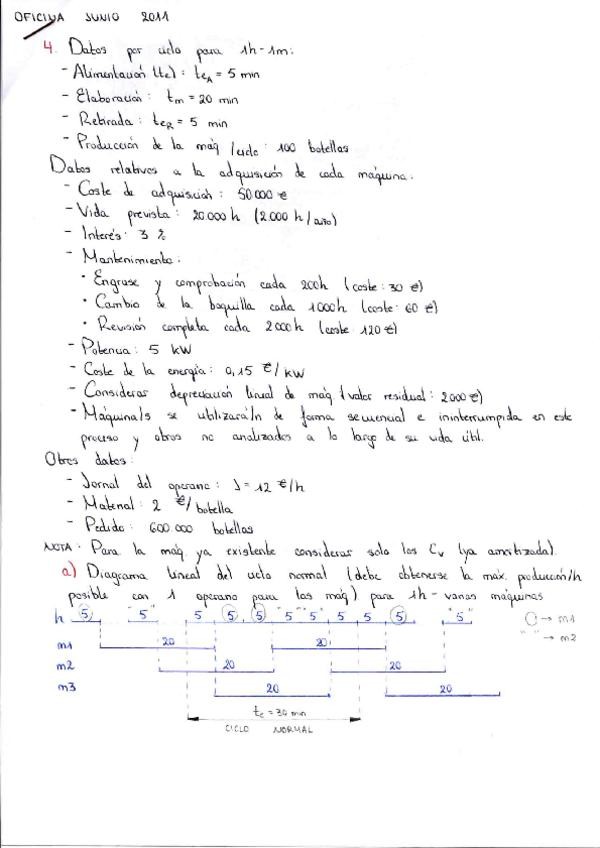 OFICINA JUNIO 2011
4. Datos por ciclo para 1h-1m:
- Alimentación (te): teA = 5 min
- Elaboración: tm = 20 min
- Retirada: teR = 5 min
- Producción de la máq /ciclo: 100 botellas
Datos relativos a la adquisición de cada máquina:
- Coste de adquisición: 50.000 €
- Vida prevista: 20.000 h (2.000 h/año)
- Interés: 3 %
- Mantenimiento:
• Engrase y comprobación cada 200h (coste: 30 €)
• Cambio de la boquilla cada 1000h (coste: 60 €)
• Revisión completa cada 2000h (coste 120 €)
- Potencia: 5 kW
- Coste de la energía: 0,15 €/kW
- Considerar depreciación lineal de máq (valor residual: 2000 €)
- Máquina/s se utilizará/n de forma secuencial e ininterrumpida en este
proceso y otros no analizados a lo largo de su vida útil.
Otros datos:
- Jornal del operario: J = 12 €/h
- Material: 2 €/botella
- Pedido: 600.000 botellas
NOTA: Para la máq. ya existente considerar solo los Cv (ya amortizada).
a) Diagrama lineal del ciclo normal (debe obtenerse la máx. producción/h
posible con 1 operario para las máq) para 1h - varias máquinas
h 5 "5" 5 5 5 "5" "5" 5 5 5 "5" O → m1
m1 20 20 " " → m2
m2 20 20
m3 20 20
tc = 30 min
CICLO NORMAL